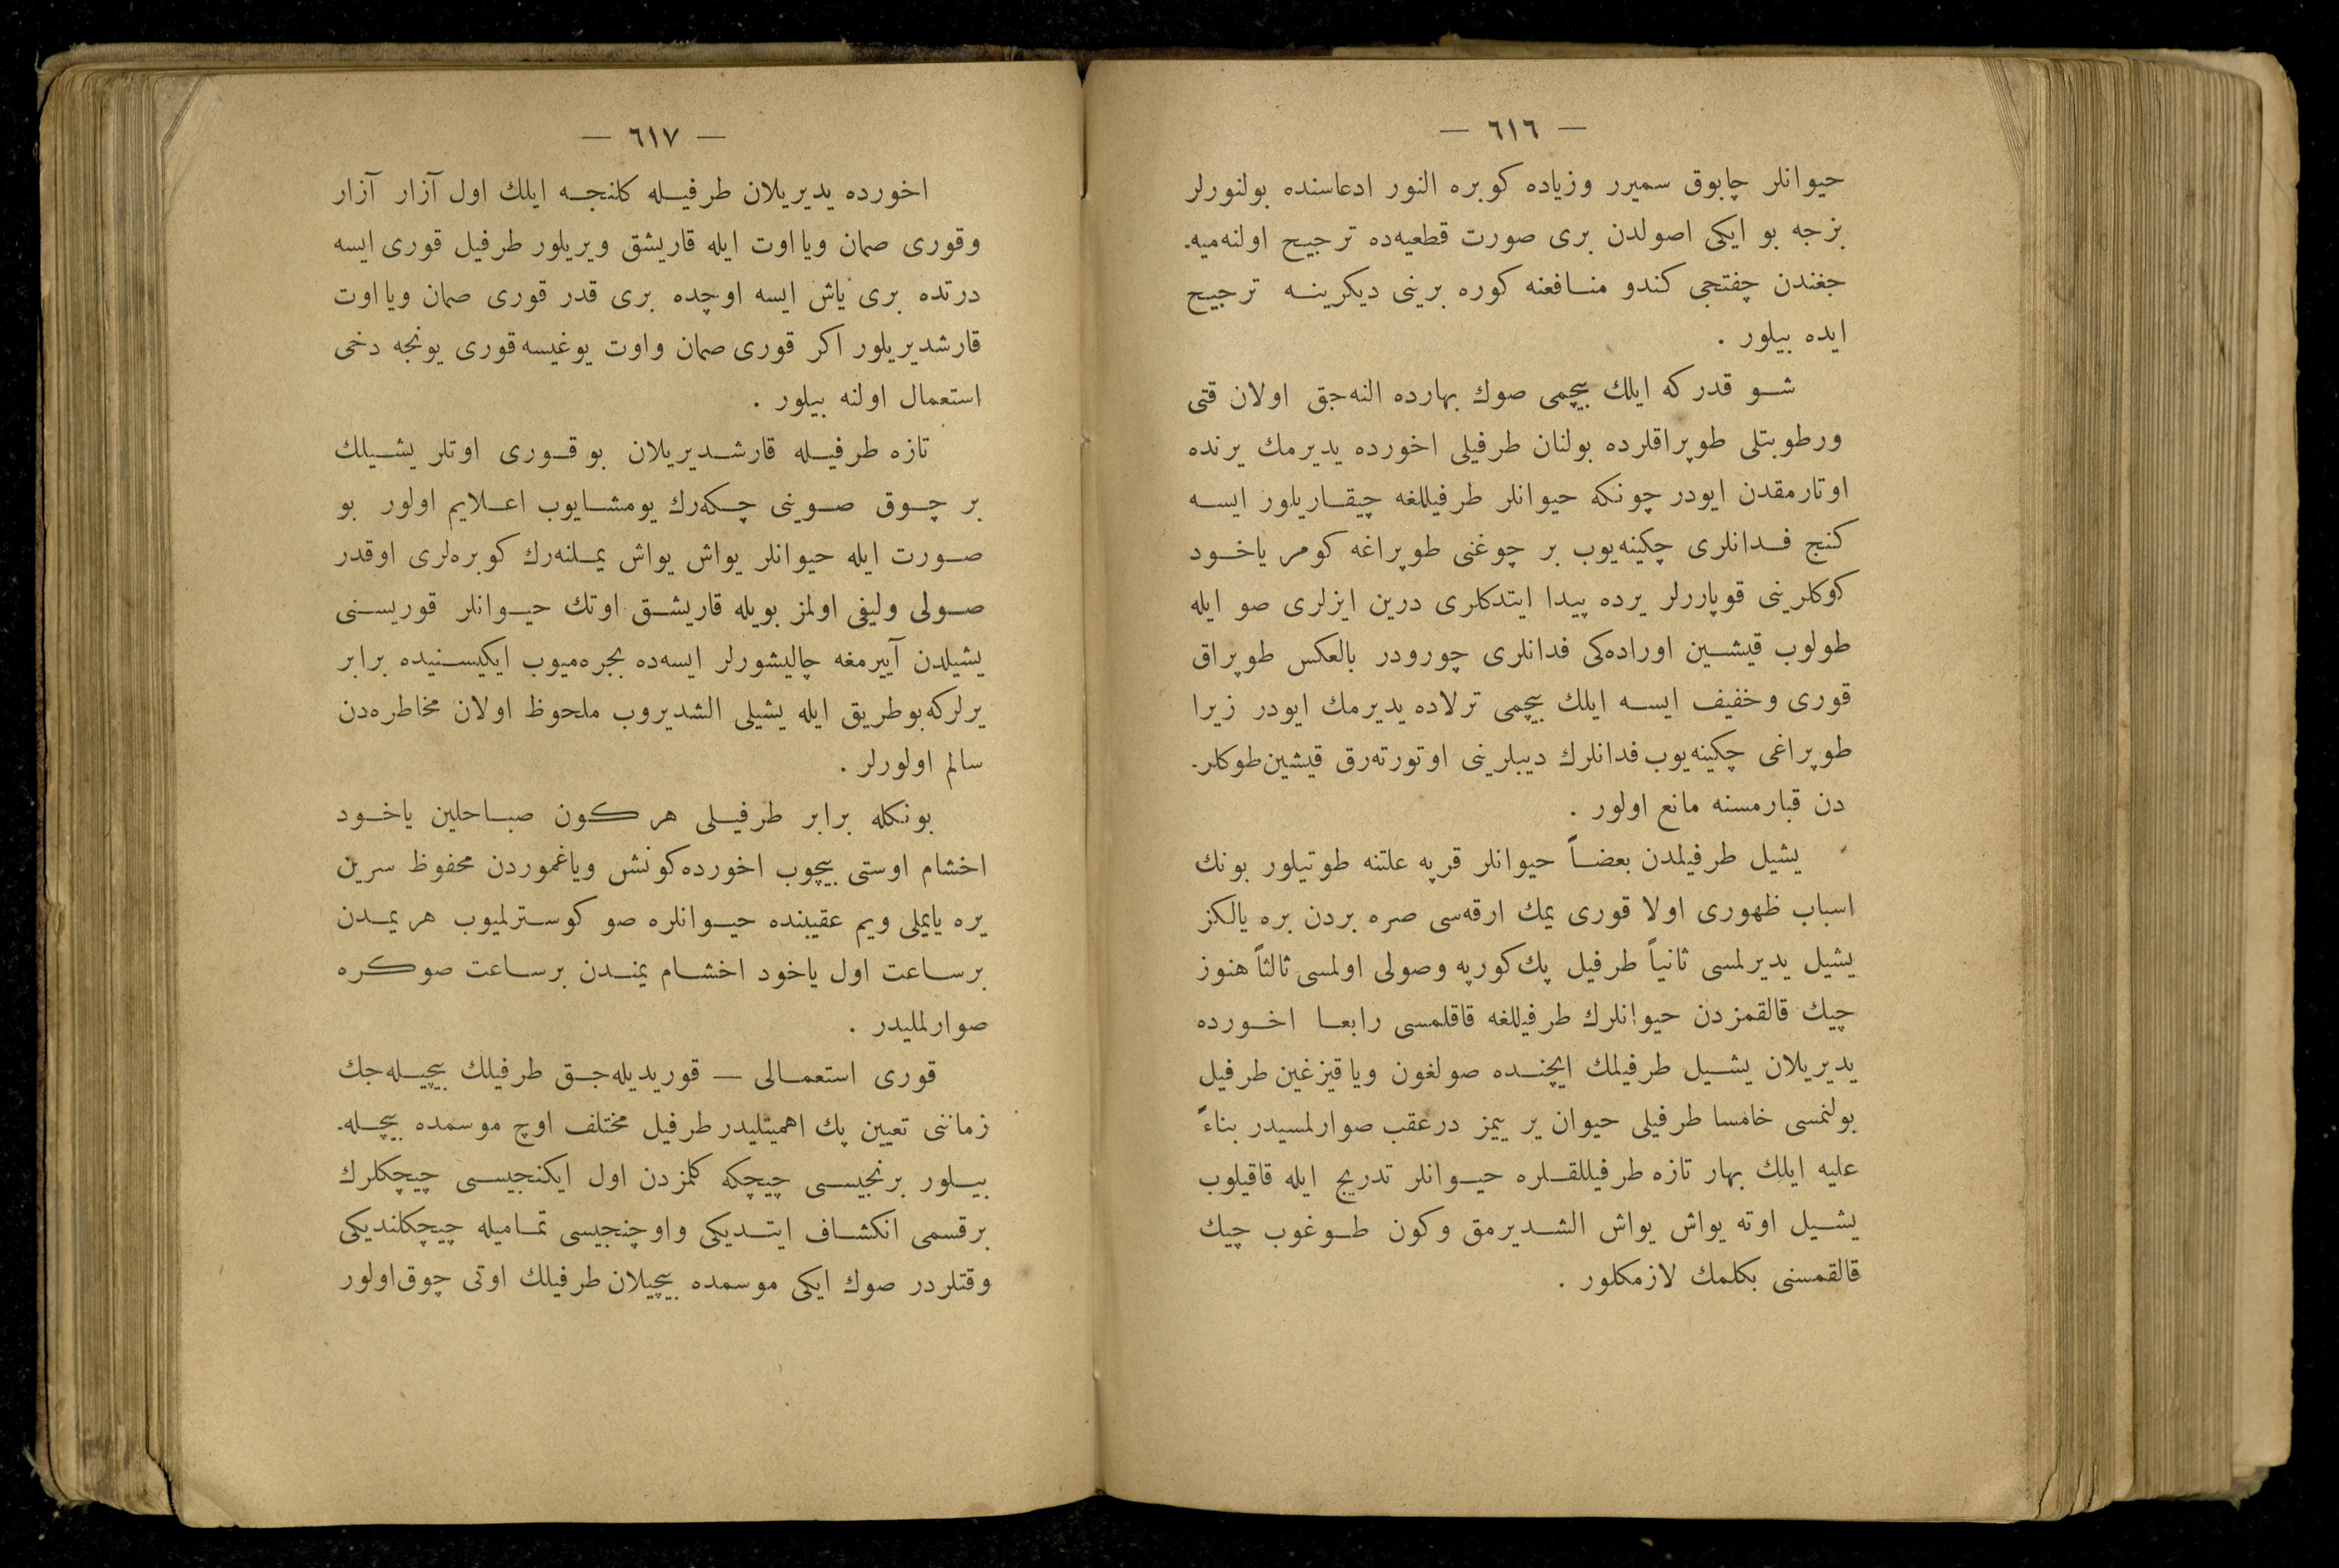 — ٦١٦ —
حیوانلر چابوق سمیرر وزیاده کوبره النور ادعاسنده بولنورلر
بزجه بو ایکی اصولدن بری صورت قطعیه‌ده ترجیح اولنه‌میه‌-
جغندن چفتجی کندو منافعنه کوره برینی دیکرینه ترجیح
ایده بیلور .
شو قدر که ایلك بیچمی صوك بهارده النه‌جق اولان قتی
ورطوبتلی طوپراقلرده بولنان طرفیلی اخورده یدیرمك یرنده
اوتارمقدن ایودر چونکه حیوانلر طرفیللغه چیقاریلور ایسه
کنج فدانلری چکینه‌یوب بر چوغنی طوپراغه کومر یاخود
کوکلرینی قوپاررلر یرده پیدا ایتدکلری درین ایزلری صو ایله
طولوب قیشین اوراده‌کی فدانلری چورودر بالعکس طوپراق
قوری وخفیف ایسه ایلك بیچمی ترلاده یدیرمك ایودر زیرا
طوپراغی چکینه‌یوب فدانلرك دیبلرینی اوتورته‌رق قیشین طوکلر-
دن قبارمسنه مانع اولور .
یشیل طرفیلدن بعضاً حیوانلر قرپه علتنه طوتیلور بونك
اسباب ظهوری اولا قوری یمك ارقه‌سی صره بردن بره یالکز
یشیل یدیرلمسی ثانیاً طرفیل پك کورپه وصولی اولمسی ثالثاً هنوز
چیك قالقمزدن حیوانلرك طرفیللغه قاقلمسی رابعا اخورده
یدیریلان یشیل طرفیلك ایچنده صولغون ویا قیزغین طرفیل
بولنمسی خامسا طرفیلی حیوان یر ییمز درعقب صوارلمسیدر بناءً
علیه ایلك بهار تازه طرفیللقلره حیوانلر تدریج ایله قاقیلوب
یشیل اوته یواش یواش الشدیرمق وکون طوغوب چیك
قالقمسنی بکلمك لازمکلور .
— ٦١٧ —
اخورده یدیریلان طرفیله کلنجه ایلك اول آزار آزار
وقوری صمان ویا اوت ایله قاریشق ویریلور طرفیل قوری ایسه
درتده بری یاش ایسه اوچده بری قدر قوری صمان ویا اوت
قارشدیریلور اکر قوری صمان واوت یوغیسه قوری یونجه دخی
استعمال اولنه بیلور .
تازه طرفیله قارشدیریلان بو قوری اوتلر یشیلك
بر چوق صوینی چکه‌رك یومشایوب اعلایم اولور بو
صورت ایله حیوانلر یواش یواش یملنه‌رك کوبره‌لری اوقدر
صولی ولیفی اولمز بویله قاریشق اوتك حیوانلر قوریسنی
یشیلدن آییرمغه چالیشورلر ایسه‌ده بجره‌میوب ایکیسنیده برابر
یرلرکه بوطریق ایله یشیلی الشدیروب ملحوظ اولان مخاطره‌دن
سالم اولورلر .
بونکله برابر طرفیلی هر کون صباحلین یاخود
اخشام اوستی بیچوب اخورده کونش ویاغموردن محفوظ سرین
یره یایملی ویم عقیبنده حیوانلره صو کوسترلمیوب هر یمدن
بر ساعت اول یاخود اخشام یمندن بر ساعت صوکره
صوارلملیدر .
قوری استعمالی — قوریدیله‌جق طرفیلك بیچیله‌جك
زماننی تعیین پك اهمیتلیدر طرفیل مختلف اوچ موسمده بیچیله‌-
بیلور برنجیسی چیچکه کلمزدن اول ایکنجیسی چیچکلرك
بر قسمی انکشاف ایتدیکی واوچنجیسی تمامیله چیچکلندیکی
وقتلردر صوك ایکی موسمده بیچیلان طرفیلك اوتی چوق اولور